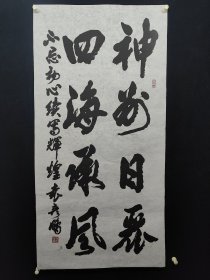 神州日丽
四海承风
不忘初心续写辉煌